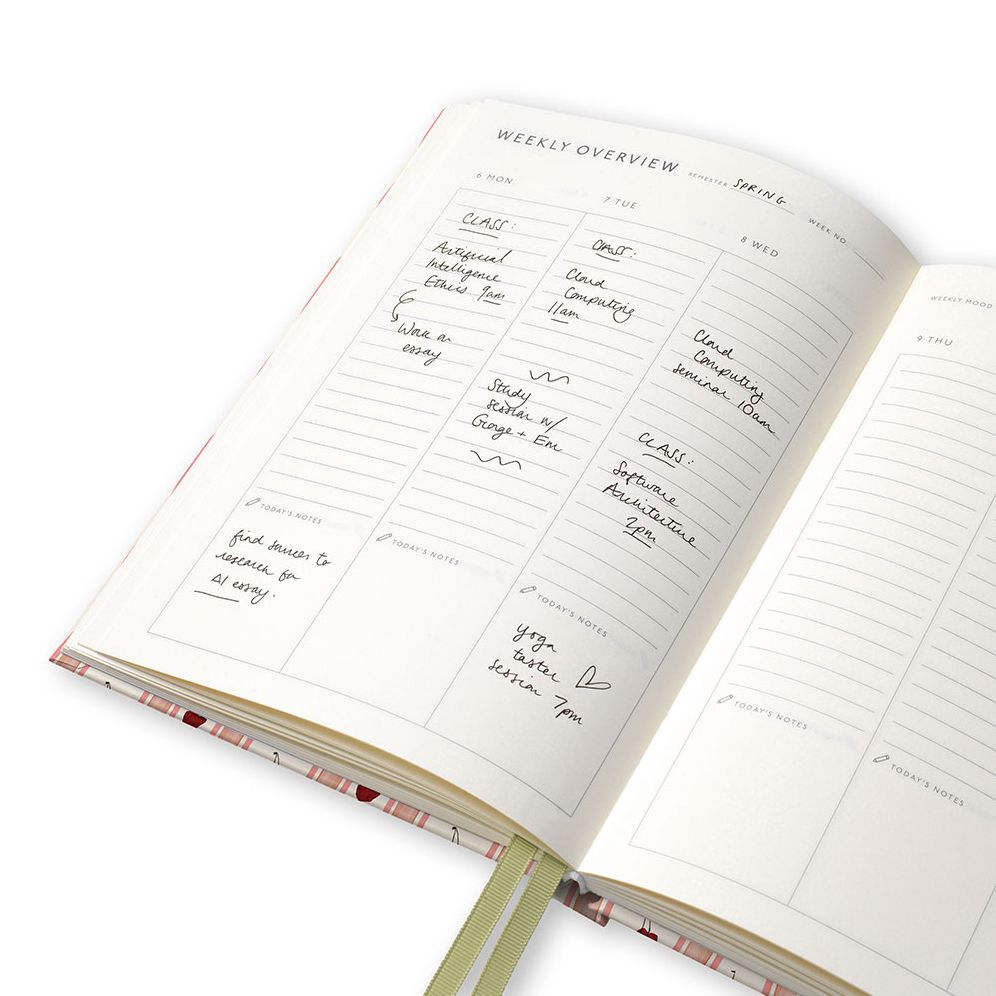 WEEKLY OVERVIEW
SEMESTER SPRING
WEEK NO
6 MON
CLASS:
Artificial
Intelligence
Ethics 9am
Work on
essay
TODAY'S NOTES
find sources to
research for
AI essay.
7 TUE
CLASS:
Cloud
Computing
11am
Study
session w/
George + Em
TODAY'S NOTES
8 WED
Cloud
Computing
seminar 10am
CLASS:
Software
Architecture
2pm
TODAY'S NOTES
yoga
taster
session 7pm
WEEKLY MOOD
9 THU
TODAY'S NOTES
TODAY'S NOTES